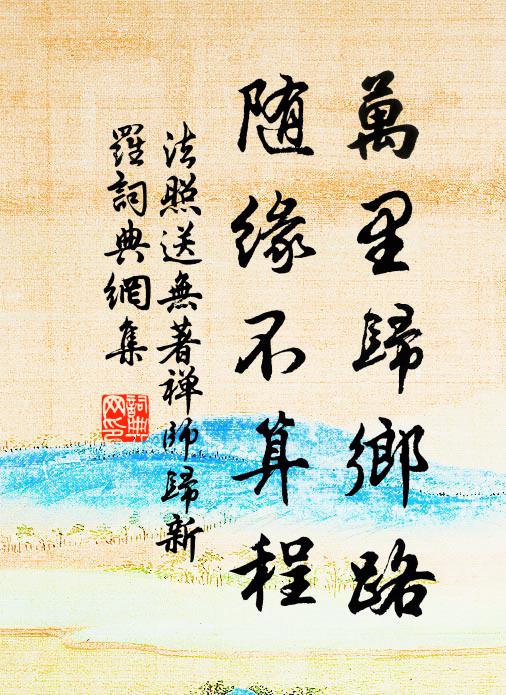 萬里歸鄉路
随緣不算程
法照送無著禅師歸新
羅詞典網集
詞典
网印